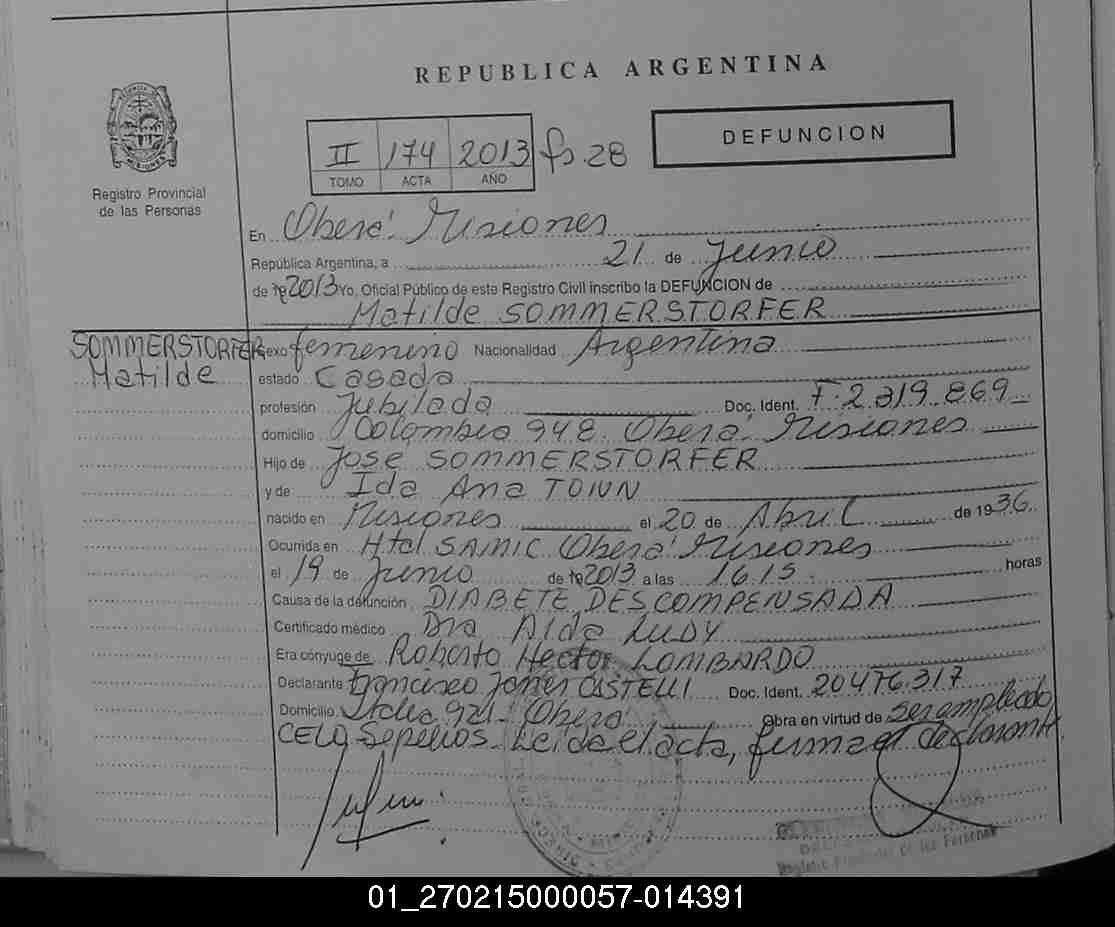 REPUBLICA ARGENTINA
Registro Provincial
de las Personas
II 174 2013 fs 28
TOMO ACTA AÑO
DEFUNCION
En Oberá Misiones
República Argentina, a 21 de Junio
de 2013 Yo, Oficial Público de este Registro Civil inscribo la DEFUNCION de
Matilde SOMMERSTORFER
SOMMERSTORFER
Matilde
sexo femenino Nacionalidad Argentina
estado Casada
profesión Jubilada Doc. Ident. F 2.319.869
domicilio Colombia 948 Oberá Misiones
Hijo de José SOMMERSTORFER
y de Ida Ana
nacido en Misiones el 20 de Abril de 1936
Ocurrida en Htal SAMIC Oberá Misiones
el 19 de Junio de 2013 a las 16.15 horas
Causa de la defunción DIABETE DESCOMPENSADA
Certificado médico Dra Alda LUDY
Era cónyuge de Roberto Hector LOMBARDO
Declarante Francisco CASTELLI Doc. Ident. 20476317
Domicilio Italia 921 Oberá Obra en virtud de ser empleado
CELO Sepelios. Leída el acta, firma el declarante.
Registro Provincial de las Personas
01_270215000057-014391